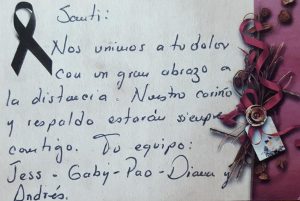 Santi:
Nos unimos a tu dolor
con un gran abrazo a
la distancia. Nuestro cariño
y respaldo estarán siempre
contigo. Tu equipo:
Jess - Gaby - Pao - Diana y
Andrés.